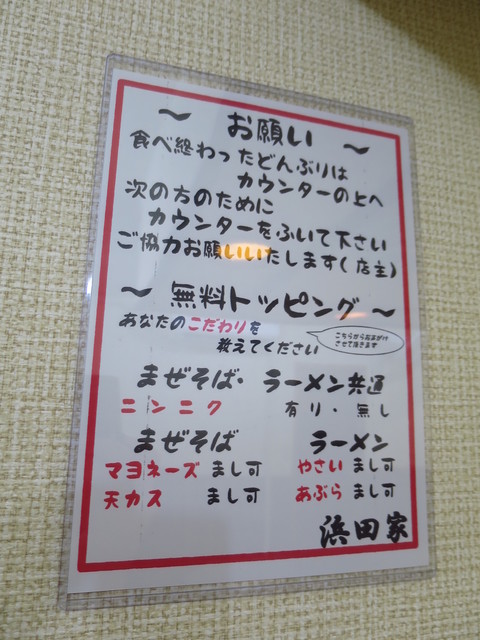 ～ お願い ～
食べ終わったどんぶりは
カウンターの上へ
次の方のために
カウンターをふいて下さい
ご協力お願いいたします(店主)
～ 無料トッピング ～
あなたのこだわりを
教えてください
こちらからお声がけ
させて頂きます
まぜそば・ラーメン共通
ニンニク 有り・無し
まぜそば ラーメン
マヨネーズ まし可 やさい まし可
天カス まし可 あぶら まし可
浜田家